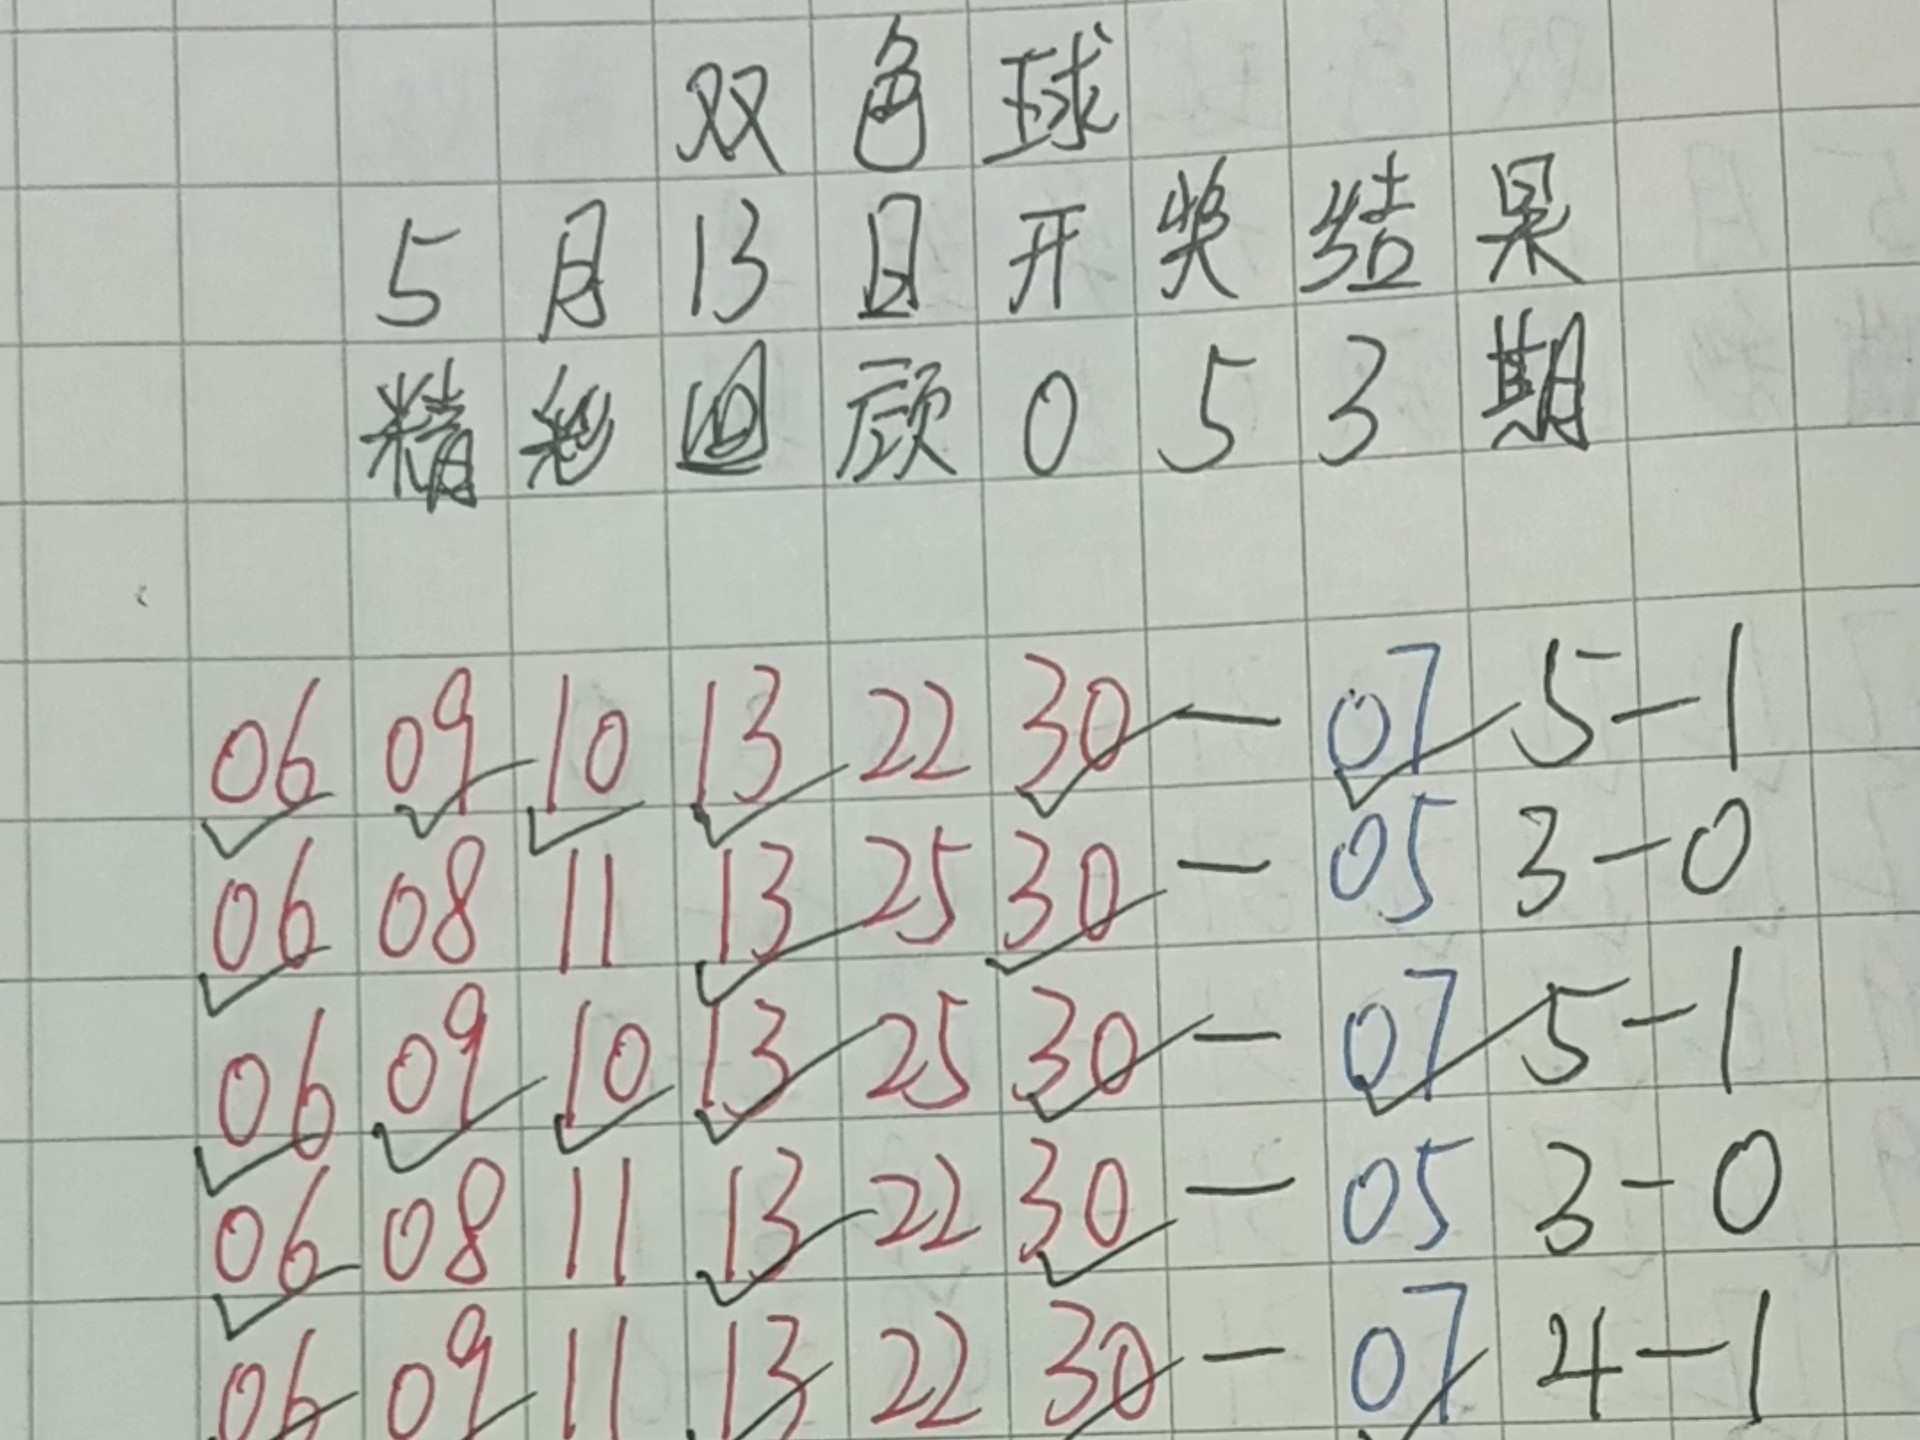 双色球
5月13日开奖结果
精彩回顾053期
06 09 10 13 22 30 — 07 5-1
06 08 11 13 25 30 — 05 3-0
06 09 10 13 25 30 — 07 5-1
06 08 11 13 22 30 — 05 3-0
06 09 11 13 22 30 — 07 4-1